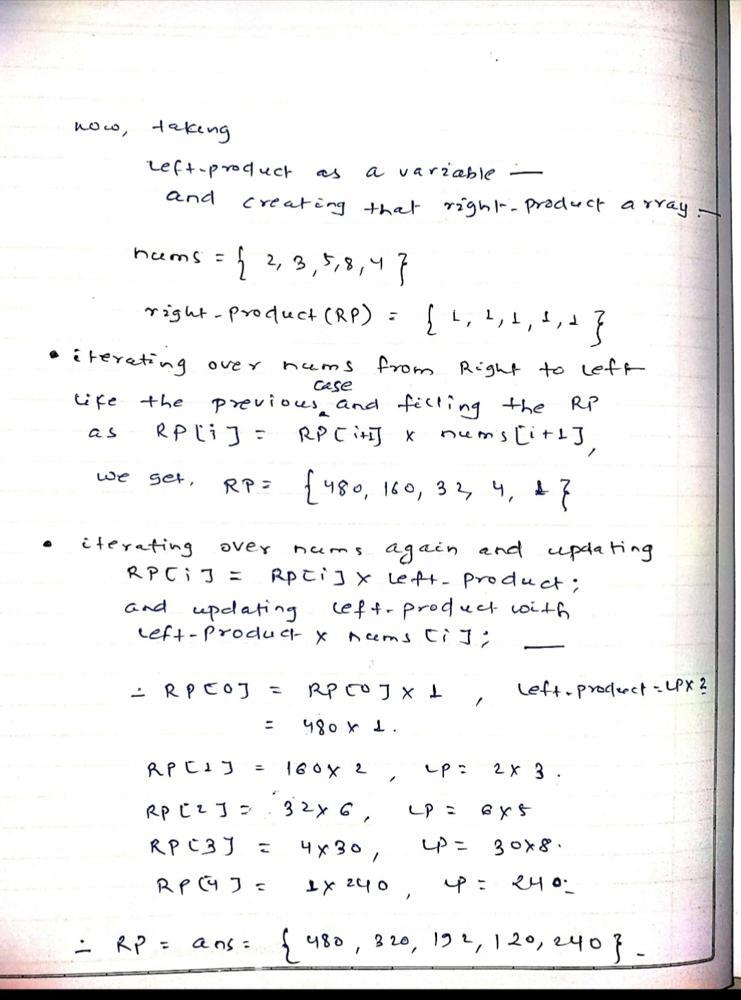 now, taking
left-product as a variable —
and creating that right-product array. —
nums = { 2, 3, 5, 8, 4 }
right-product (RP) = { 1, 1, 1, 1, 1 }
• iterating over nums from Right to left
like the previous case and filling the RP
as RP[i] = RP[i+1] x nums[i+1],
we get, RP = { 480, 160, 32, 4, 1 }
• iterating over nums again and updating
RP[i] = RP[i] x left-product;
and updating left-product with
left-product x nums[i]; —
∴ RP[0] = RP[0] x 1 , left-product = LP x 2
= 480 x 1.
RP[1] = 160 x 2 , LP = 2 x 3.
RP[2] = 32 x 6, LP = 6 x 5
RP[3] = 4 x 30, LP = 30 x 8.
RP[4] = 1 x 240 , LP = 240.
∴ RP = ans = { 480, 320, 192, 120, 240 }.